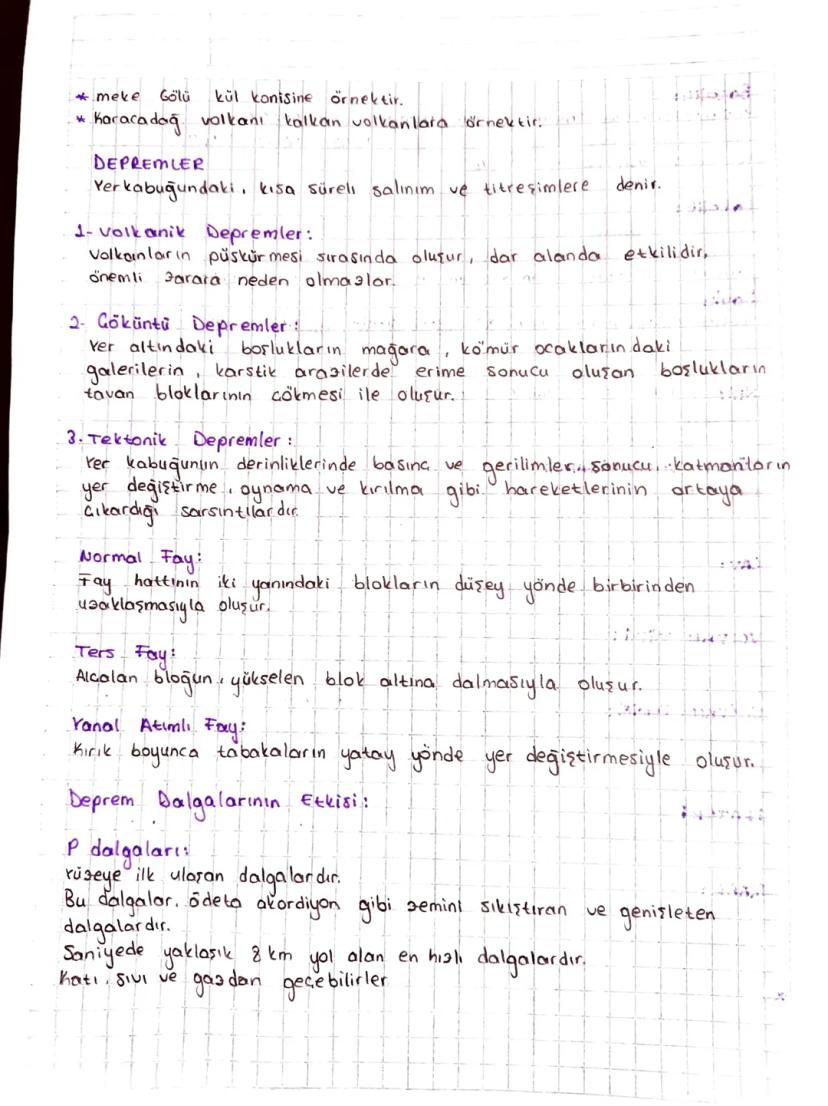 * meke Gölü kül konisine örnektir.
* Karacadağ volkanı kalkan volkanlara örnektir.
DEPREMLER
Yerkabuğundaki, kısa süreli salınım ve titreşimlere denir.
1- Volkanik Depremler:
Volkanların püskürmesi sırasında oluşur, dar alanda etkilidir,
önemli zarara neden olmazlar.
2- Çöküntü Depremler:
Yer altındaki boşlukların mağara, kömür ocaklarındaki
galerilerin, karstik arazilerde erime sonucu oluşan boşlukların
tavan bloklarının çökmesi ile oluşur.
3. Tektonik Depremler:
Yer kabuğunun derinliklerinde basınç ve gerilimler, sonucu, katmanların
yer değiştirme, oynama ve kırılma gibi hareketlerinin ortaya
çıkardığı sarsıntılardır.
Normal Fay:
Fay hattının iki yanındaki blokların düşey yönde birbirinden
uzaklaşmasıyla oluşur.
Ters Fay:
Alçalan bloğun, yükselen blok altına dalmasıyla oluşur.
Yanal Atımlı Fay:
Kırık boyunca tabakaların yatay yönde yer değiştirmesiyle oluşur.
Deprem Dalgalarının Etkisi:
P dalgaları:
Yüzeye ilk ulaşan dalgalardır.
Bu dalgalar, ödeta akordiyon gibi zemini sıkıştıran ve genişleten
dalgalardır.
Saniyede yaklaşık 8 km yol alan en hızlı dalgalardır.
Katı, sıvı ve gazdan geçebilirler